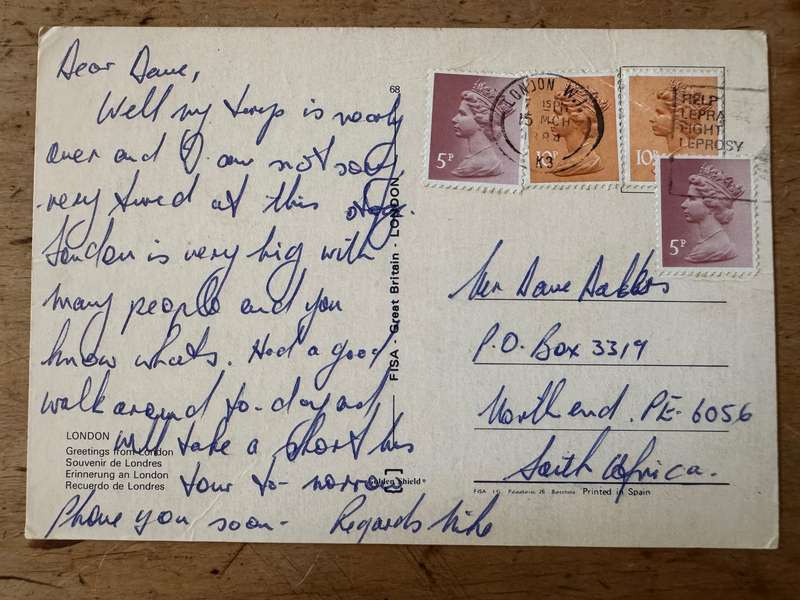 Dear Dave,
Well my trip is nearly
over and I am not sorry
very tired at this stage.
London is very big with
many people and you
know whats. Had a good
walk around to-day and
will take a short bus
tour to-morrow
Phone you soon - Regards Mike
LONDON
Greetings from London
Souvenir de Londres
Erinnerung an London
Recuerdo de Londres
68
FISA - Great Britain - LONDON
Golden Shield®
5P
10P
10P
5P
LONDON W.1
15
15 MCH
K3
HELP
LEPRA
FIGHT
LEPROSY
Mr Dave
P.O. Box 3319
North end. PE- 6056
South Africa.
FISA Barcelona Printed in Spain